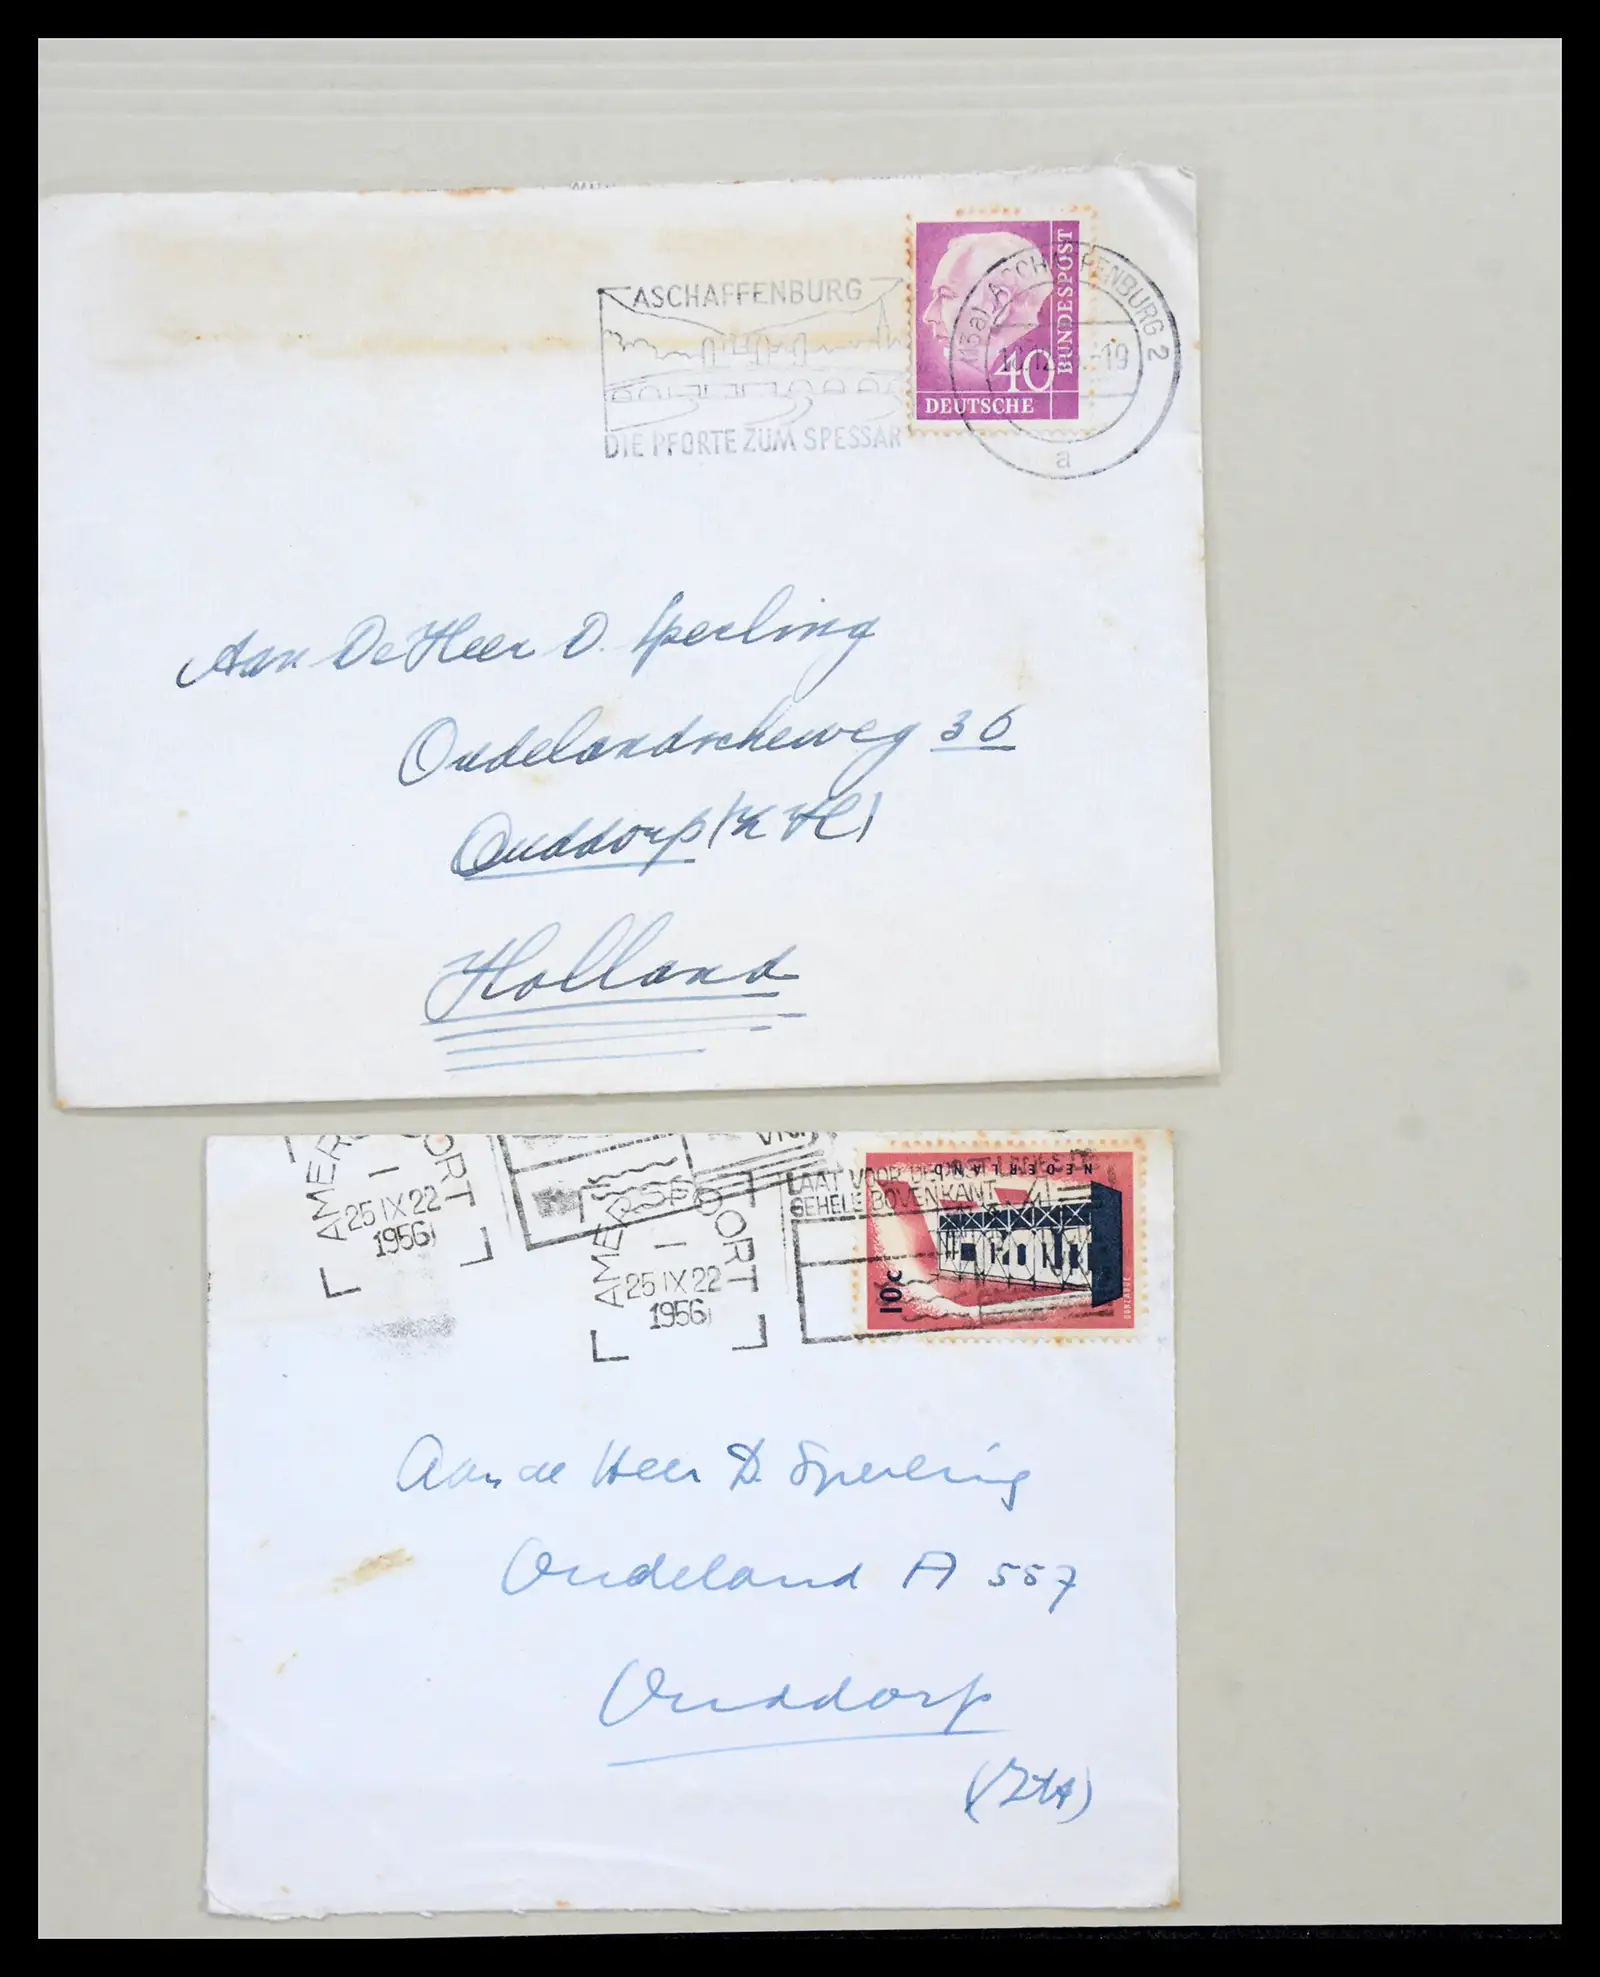 ASCHAFFENBURG
DIE PFORTE ZUM SPESSAR
BUNDESPOST
40
DEUTSCHE
(13a) ASCHAFFENBURG 2
-19
a
Aan De Heer D. Sperling
Oudelandscheweg 36
Ouddorp
Holland
AMERSFOORT
1
25 IX 22
1956
AMERSFOORT
1
25 IX 22
1956
LAAT VOOR DE
GEHELE BOVENKANT
NEDERLAND
10c
Aan de Heer D. Sperling
Oudeland A 557
Ouddorp